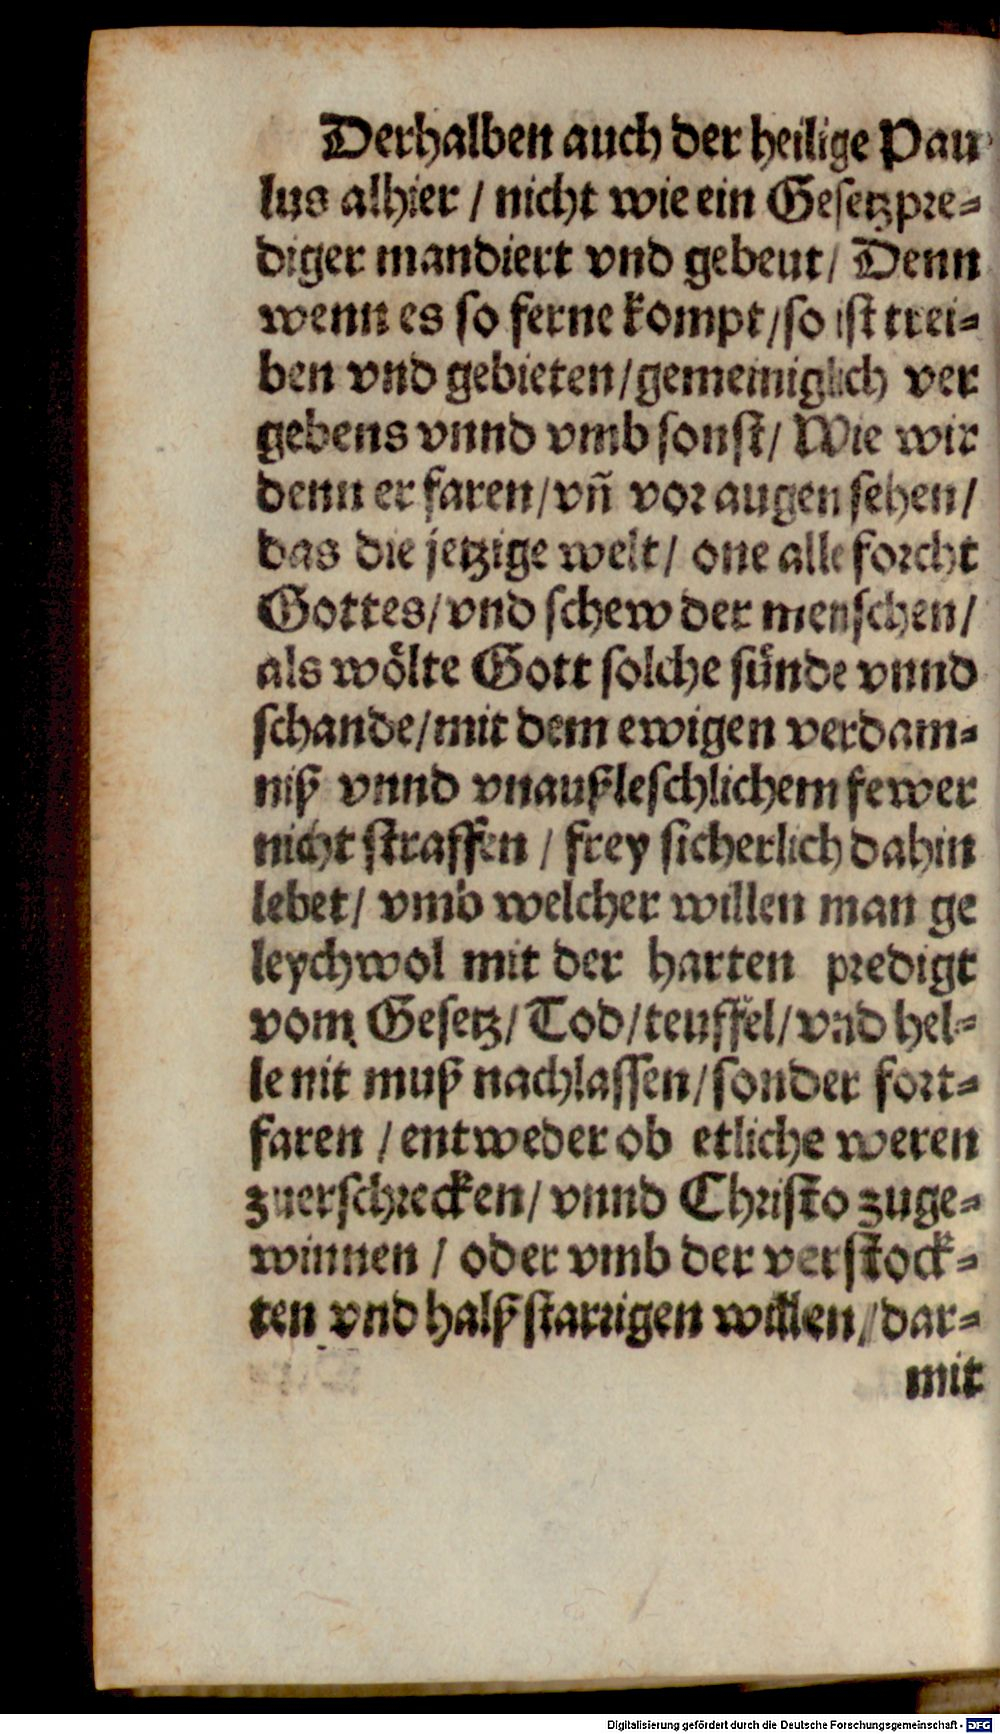 Derhalben auch der heilige Pau
lus alhier / nicht wie ein Gesetzpre-
diger mandiert vnd gebeut / Denn
wenn es so ferne kompt / so ist trei-
ben vnd gebieten / gemeiniglich ver
gebens vnnd vmb sonst / Wie wir
denn er faren / vñ vor augen sehen /
das die jetzige welt / one alle forcht
Gottes / vnd schew der menschen /
als wölte Gott solche sünde vnnd
schande / mit dem ewigen verdam-
niß vnnd vnaußleschlichem fewer
nicht straffen / frey sicherlich dahin
lebet / vmb welcher willen man ge
leychwol mit der harten predigt
vom Gesetz / Tod / teuffel / vnd hel-
le nit muß nachlassen / sonder fort-
faren / entweder ob etliche weren
zuerschrecken / vnnd Christo zuge-
winnen / oder vmb der verstock-
ten vnd halßstarrigen willen / dar-
mit
Digitalisierung gefördert durch die Deutsche Forschungsgemeinschaft - DFG